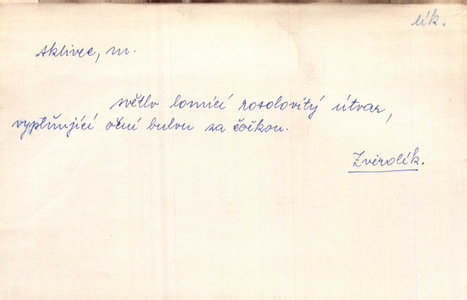 lék.
sklivec, m.
světlo lomící rosolovitý útvar,
vyplňující oční bulvu za čočkou.
Zvěrolék.